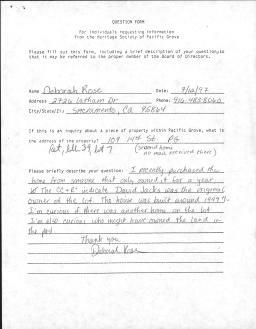 QUESTION FORM
For individuals requesting information
from the Heritage Society of Pacific Grove
Please fill out this form, including a brief description of your question,so
that it may be referred to the proper member of the Board of Directors.
Name Deborah Rose Date: 7/22/97
Address 2726 Latham Dr Phone: 916-483-8060
City/State/Zip Sacramento, Ca 95864
If this is an inquiry about a piece of property within Pacific Grove, what is
the address of the property? 109 14th St. PG
(second home
no mail received there)
Please briefly describe your question: I recently purchased the
home from someone that only owned it for a year.
The CC+R's indicate David Jacks was the original
owner of the lot. The house was built around 1949?
I'm curious if there was another home on the lot
I'm also curious who might have owned the land in
the past.
Thank you
Deborah Rose